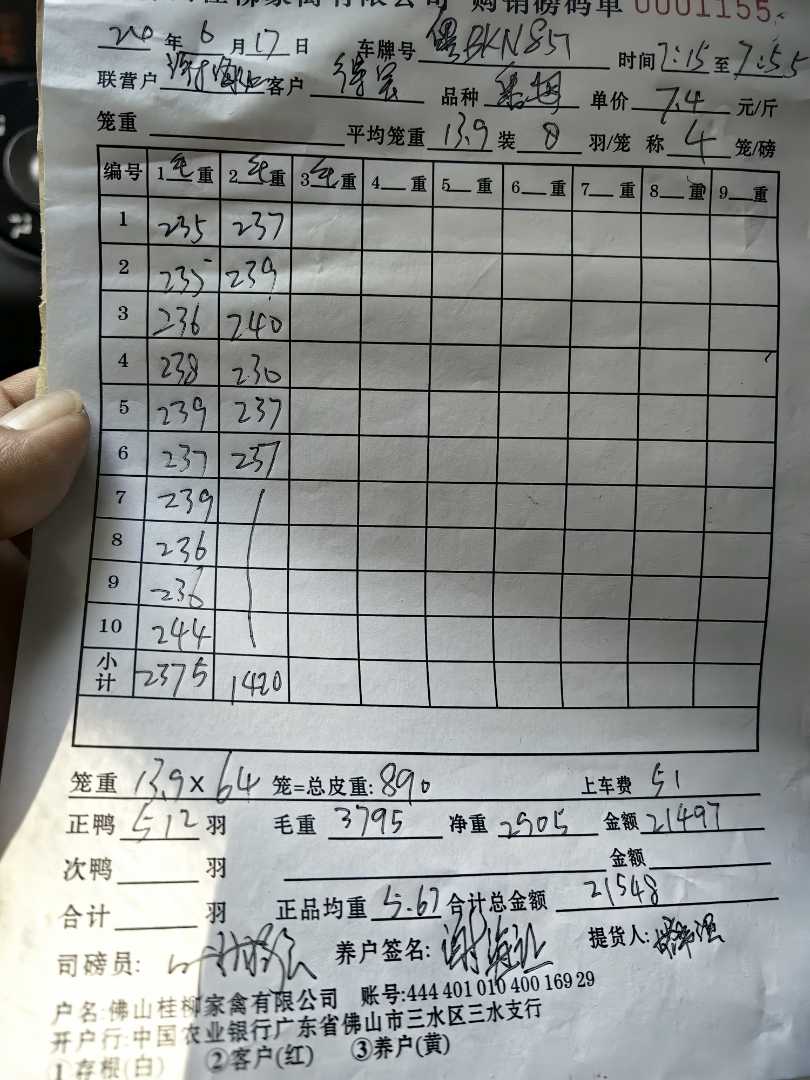 桂柳家禽有限公司 购销磅码单 0001155
年 6 月 17 日 车牌号 粤BKN857 时间 7:15 至 7:55
联营户 客户 品种 单价 7.4 元/斤
笼重 平均笼重 13.9 装 8 羽/笼 称 4 笼/磅
编号 1毛重 2毛重 3毛重 4 重 5 重 6 重 7 重 8 重 9 重
1 235 237
2 235 239
3 236 240
4 238 230
5 239 237
6 237 237
7 239
8 236
9 236
10 244
小计 2375 1420
笼重 13.9 x 64 笼=总皮重: 890 上车费 51
正鸭 512 羽 毛重 3795 净重 2905 金额 21497
次鸭 羽 金额
合计 羽 正品均重 5.67 合计总金额 21548
司磅员: 养户签名: 提货人:
户名:佛山桂柳家禽有限公司 账号:444 401 010 400 169 29
开户行:中国农业银行广东省佛山市三水区三水支行
①存根(白) ②客户(红) ③养户(黄)